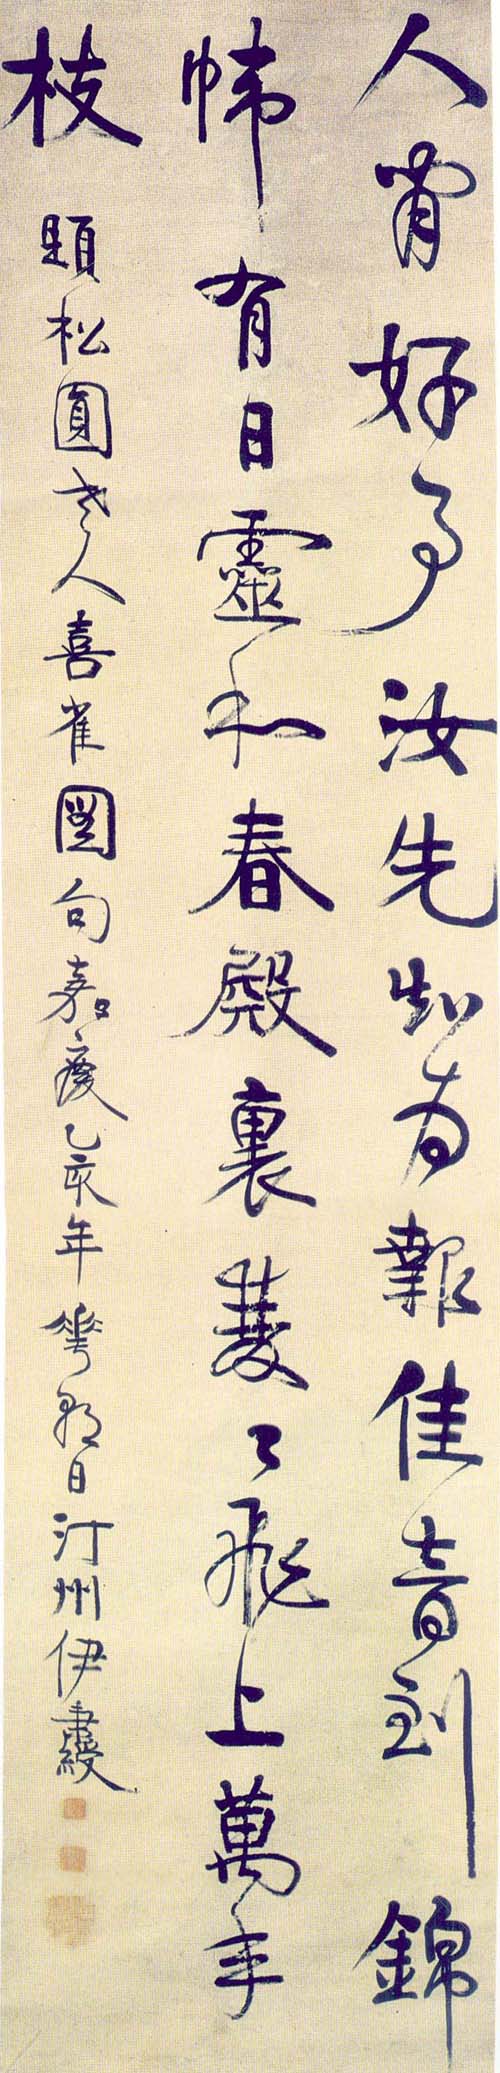 人好事汝先知為報佳音到錦
幃有日靈和春殿裏雙々飛上萬年
枝
題松圓老人喜雀圖句嘉慶乙亥年華朝日汀州伊秉綬